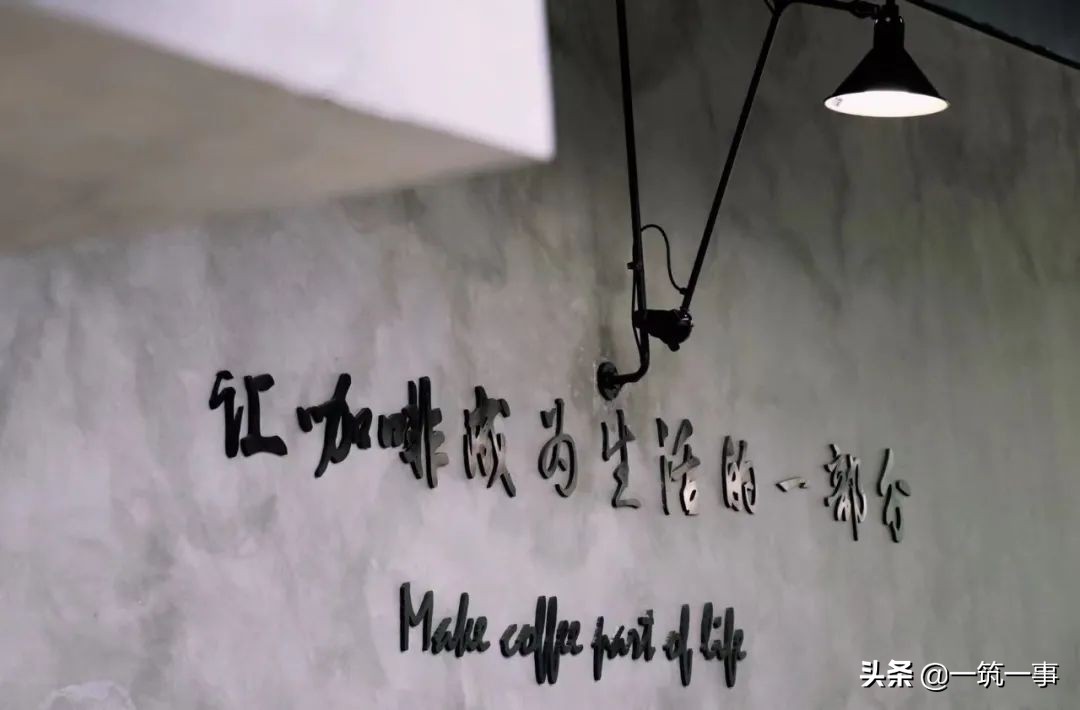 让咖啡成为生活的一部分
Make coffee part of life
头条 @一筑一事